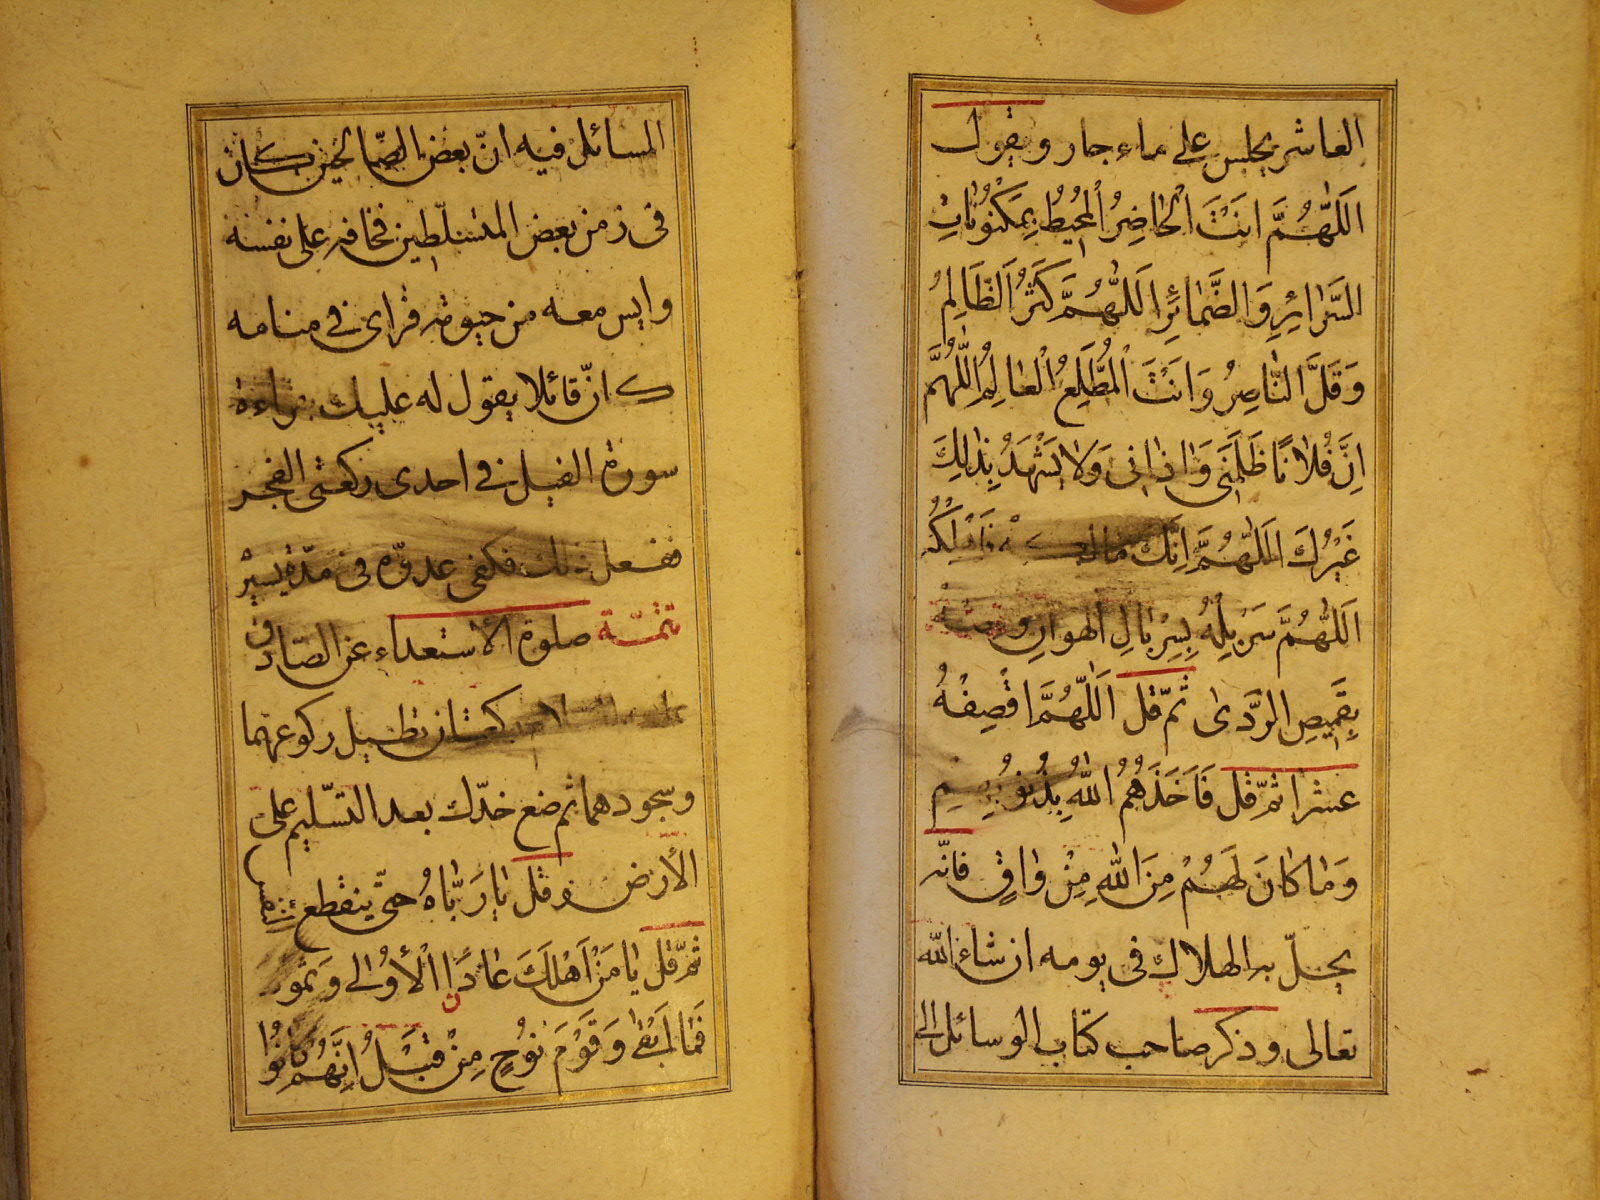 العاشر يجلس على ماء جار ويقول
اَللّٰهُمَّ اَنْتَ الْحٰاضِرُ الْمُحيطُ بِمَكْنُوناتِ
السَّرٰائِرِ وَالضَّمٰائِرِ اَللّٰهُمَّ كَثُرَ الظّٰالِمُ
وَقَلَّ النّٰاصِرُ وَاَنْتَ الْمُطَّلِعُ الْعٰالِمُ اَللّٰهُمَّ
اِنَّ فُلٰانًا ظَلَمَنى وَاٰذٰانى وَلا يَشْهَدُ بِذٰلِكَ
غَيْرُكَ اَللّٰهُمَّ اِنَّكَ
اَللّٰهُمَّ سَرْبِلْهُ بِسِرْبٰالِ الْهَوانِ
بِقَميصِ الرَّدٰى ثمّ قل اَللّٰهُمَّ اقْصِفْهُ
عشرا ثمّ قل فَاَخَذَهُمُ اللّٰهُ بِذُنُوبِهِمْ
وَمٰا كٰانَ لَهُمْ مِنَ اللّٰهِ مِنْ وٰاقٍ فانّه
يحلّ به الهلاك فى يومه ان شاء الله
تعالى وذكر صاحب كتاب الوسائل الى
المسائل فيه انّ بعض الصّالحين كان
فى زمن بعض المتسلّطين فخافه على نفسه
وايس معه من حيوته فراى فى منامه
كانّ قائلا يقول له عليك بقراءة
سورة الفيل فى احدى ركعتى الفجر
ففعل ذلك فكفى عدوّه فى مدّة يسيرة
تتمّة صلوة الاستعداء عن الصّادق
ركعتان تطيل ركوعهما
وسجودهما ثم ضع خدّك بعد التّسليم على
الأرض وقل يٰا رَبّٰاهُ حتّى ينقطع النفس
ثمّ قل يٰا مَنْ اَهْلَكَ عٰادًا الْأُولٰى وَثَمُودَ
فَمٰا اَبْقٰى وَقَوْمَ نُوحٍ مِنْ قَبْلُ اِنَّهُمْ كٰانُوا